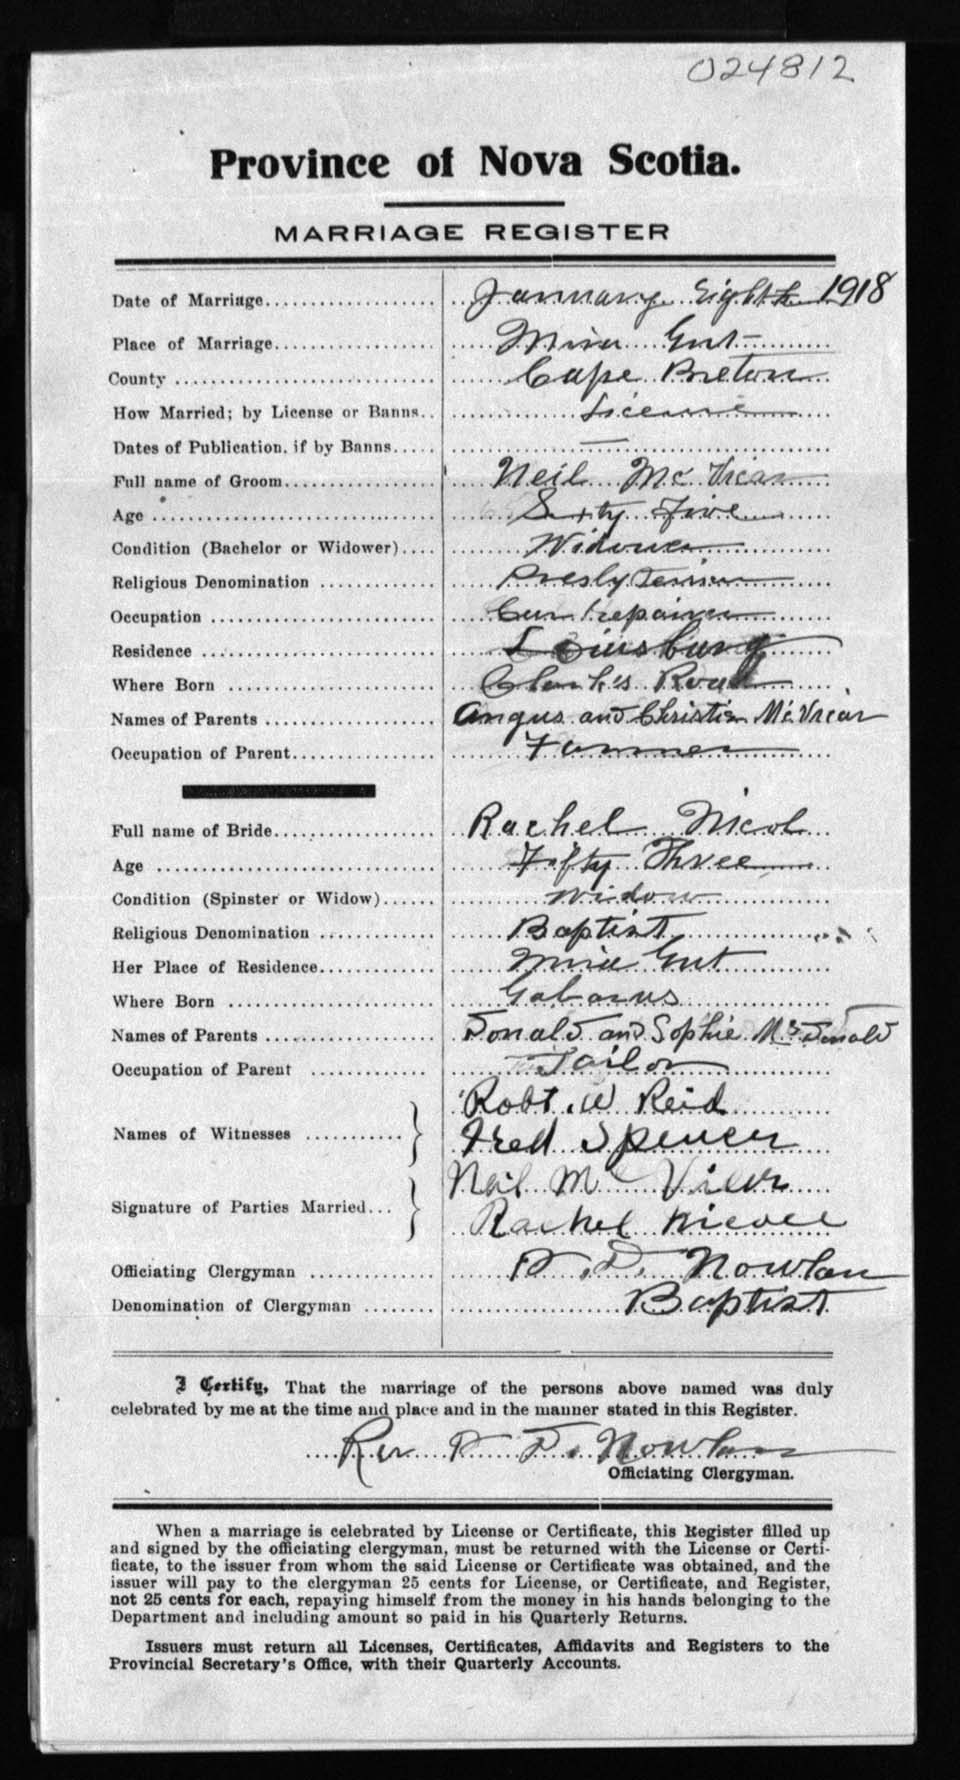 024812
Province of Nova Scotia.
MARRIAGE REGISTER
Date of Marriage January Eighth 1918
Place of Marriage Mira Gut
County Cape Breton
How Married; by License or Banns License
Dates of Publication, if by Banns —
Full name of Groom Neil McVicar
Age Sixty Five
Condition (Bachelor or Widower) Widower
Religious Denomination Presbyterian
Occupation Car repairer
Residence Louisburg
Where Born Clarkes Road
Names of Parents Angus and Christia McVicar
Occupation of Parent Farmer
Full name of Bride Rachel Nicol
Age Fifty Three
Condition (Spinster or Widow) Widow
Religious Denomination Baptist
Her Place of Residence Mira Gut
Where Born Gabarus
Names of Parents Donald and Sophie McDonald
Occupation of Parent Tailor
Names of Witnesses Robt. W Reid
Fred Spencer
Signature of Parties Married Neil McVicar
Rachel
Officiating Clergyman Nowlan
Denomination of Clergyman Baptist
I Certify, That the marriage of the persons above named was duly
celebrated by me at the time and place and in the manner stated in this Register.
Rev Nowlan
Officiating Clergyman.
When a marriage is celebrated by License or Certificate, this Register filled up
and signed by the officiating clergyman, must be returned with the License or Certi-
ficate, to the issuer from whom the said License or Certificate was obtained, and the
issuer will pay to the clergyman 25 cents for License, or Certificate, and Register,
not 25 cents for each, repaying himself from the money in his hands belonging to the
Department and including amount so paid in his Quarterly Returns.
Issuers must return all Licenses, Certificates, Affidavits and Registers to the
Provincial Secretary's Office, with their Quarterly Accounts.